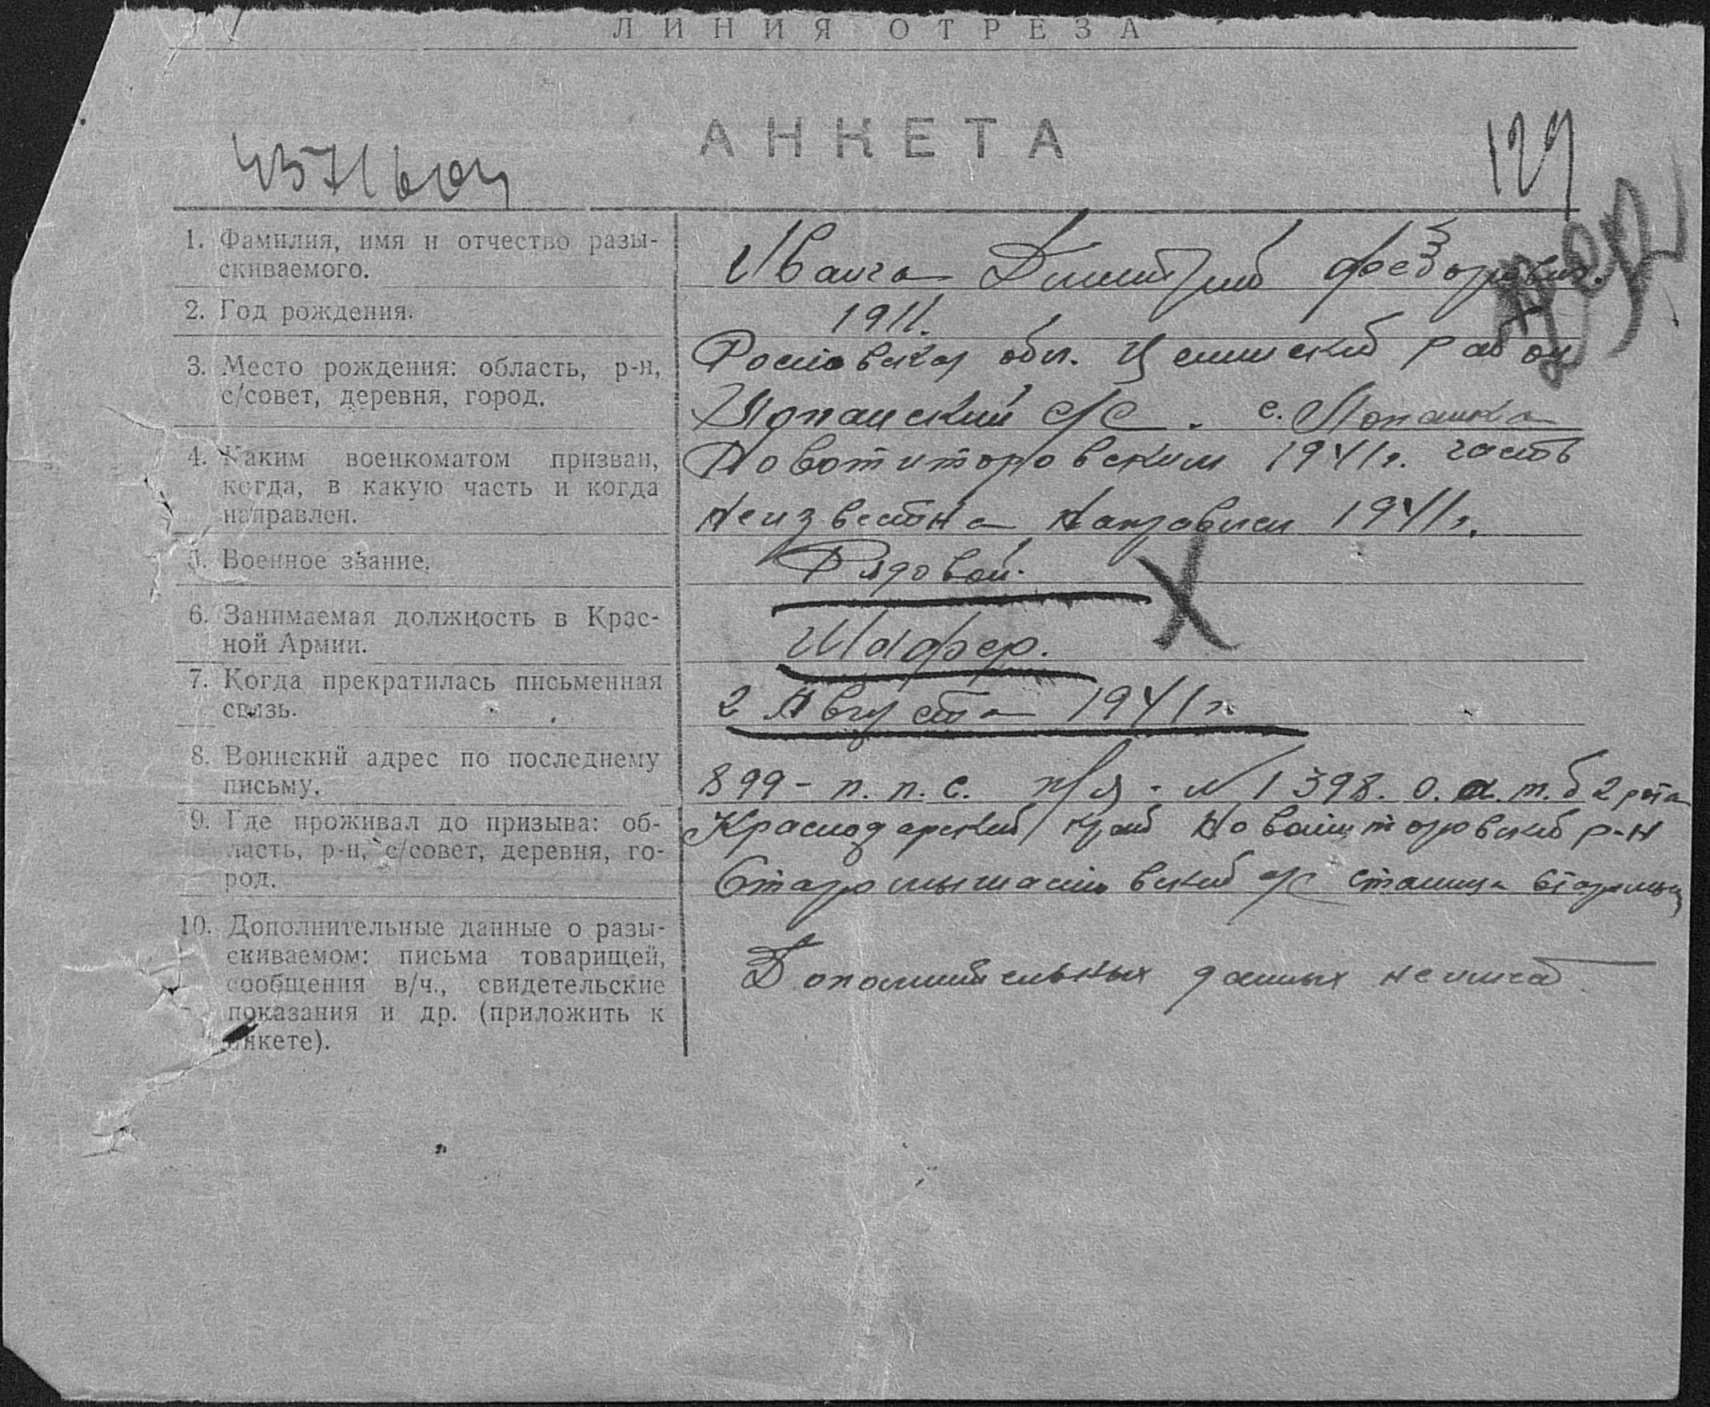 ЛИНИЯ ОТРЕЗА
АНКЕТА
129
1. Фамилия, имя и отчество разы-
скиваемого.
Иванга Дмитрий Федорович.
2. Год рождения.
1911.
3. Место рождения: область, р-н,
с/совет, деревня, город.
Ростовская обл. Целинский район
Лопанский с/с. с. Лопанка
4. Каким военкоматом призван,
когда, в какую часть и когда
направлен.
Новотиторовским 1941г. часть
неизвестна направлен 1941г.
5. Военное звание.
Рядовой.
6. Занимаемая должность в Крас-
ной Армии.
Шофер.
7. Когда прекратилась письменная
связь.
2 Августа 1941г.
8. Воинский адрес по последнему
письму.
899 - п. п. с. п/я - № 1398. о. а. т. б 2 рота
9. Где проживал до призыва: об-
ласть, р-н, с/совет, деревня, го-
род.
Краснодарский край Новотиторовский р-н
Старомышастовский с/с станица Старомыш
10. Дополнительные данные о разы-
скиваемом: письма товарищей,
сообщения в/ч., свидетельские
показания и др. (приложить к
анкете).
Дополнительных данных не имеет